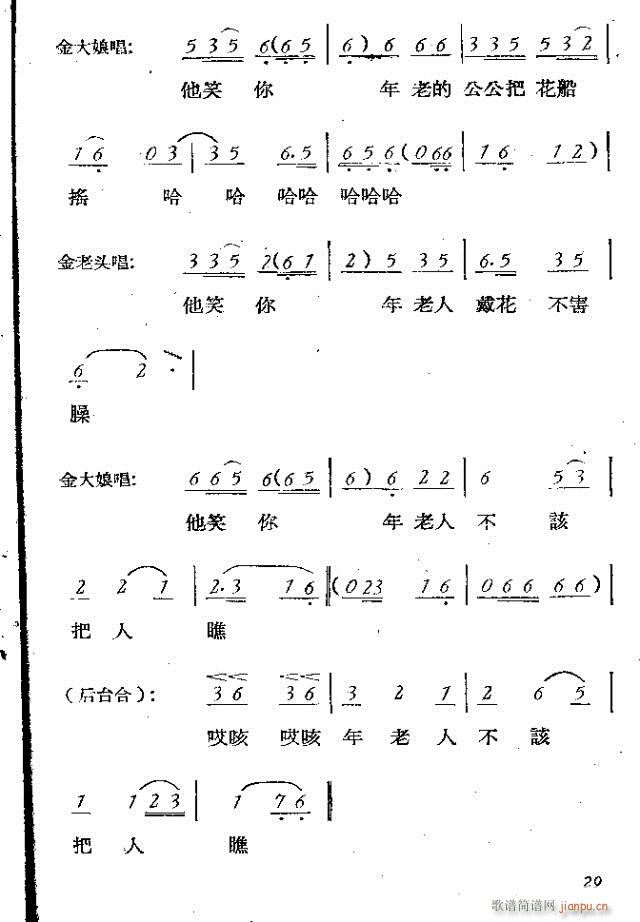 金大娘唱: 5 3 5 6 (6 5 | 6) 6 6 6 | 3 3 5 5 3 2 |
他笑 你 年 老的 公公把 花船
1 6 0 3 | 3 5 6. 5 | 6 5 6 (0 6 6 | 1 6 1 2) |
搖 哈 哈 哈哈 哈哈哈
金老头唱: 3 3 5 2 (6 1 | 2) 5 3 5 | 6. 5 3 5 |
他笑 你 年 老人 戴花 不害
6 2 |
臊
金大娘唱: 6 6 5 6 (6 5 | 6) 6 2 2 | 6 5 3 |
他笑 你 年 老人 不 該
2 2 1 | 2. 3 1 6 ‖ (0 2 3 1 6 | 0 6 6 6 6) |
把 人 瞧
(后台合): 3 6 3 6 | 3 2 1 | 2 6 5 |
哎咳 哎咳 年 老 人 不 該
1 1 2 3 | 1 7 6 ‖
把 人 瞧
29
歌谱简谱网
jianpu.cn